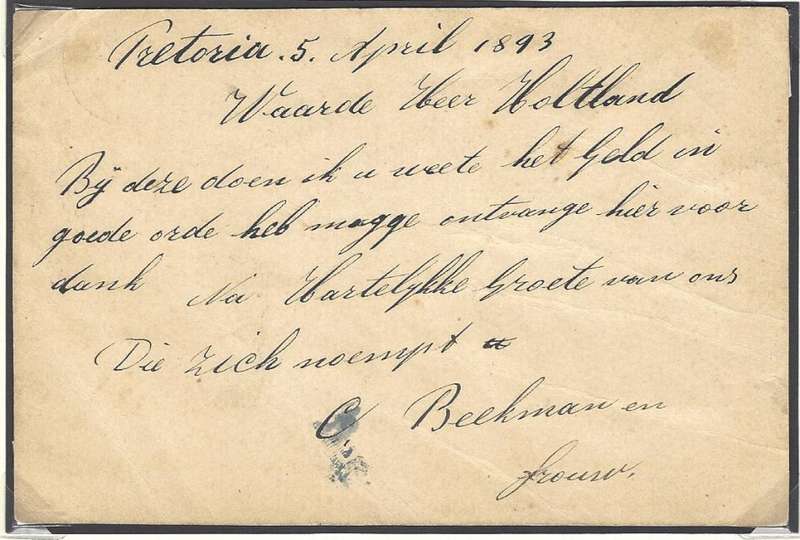 Pretoria. 5. April 1893
Waarde Heer Holtland
Bij deze doen ik u weete het Geld in
goede orde heb magge ontvange hier voor
dank Na Hartelykke Groete van ons
Die zich noempt
C Beekman en
frouw.